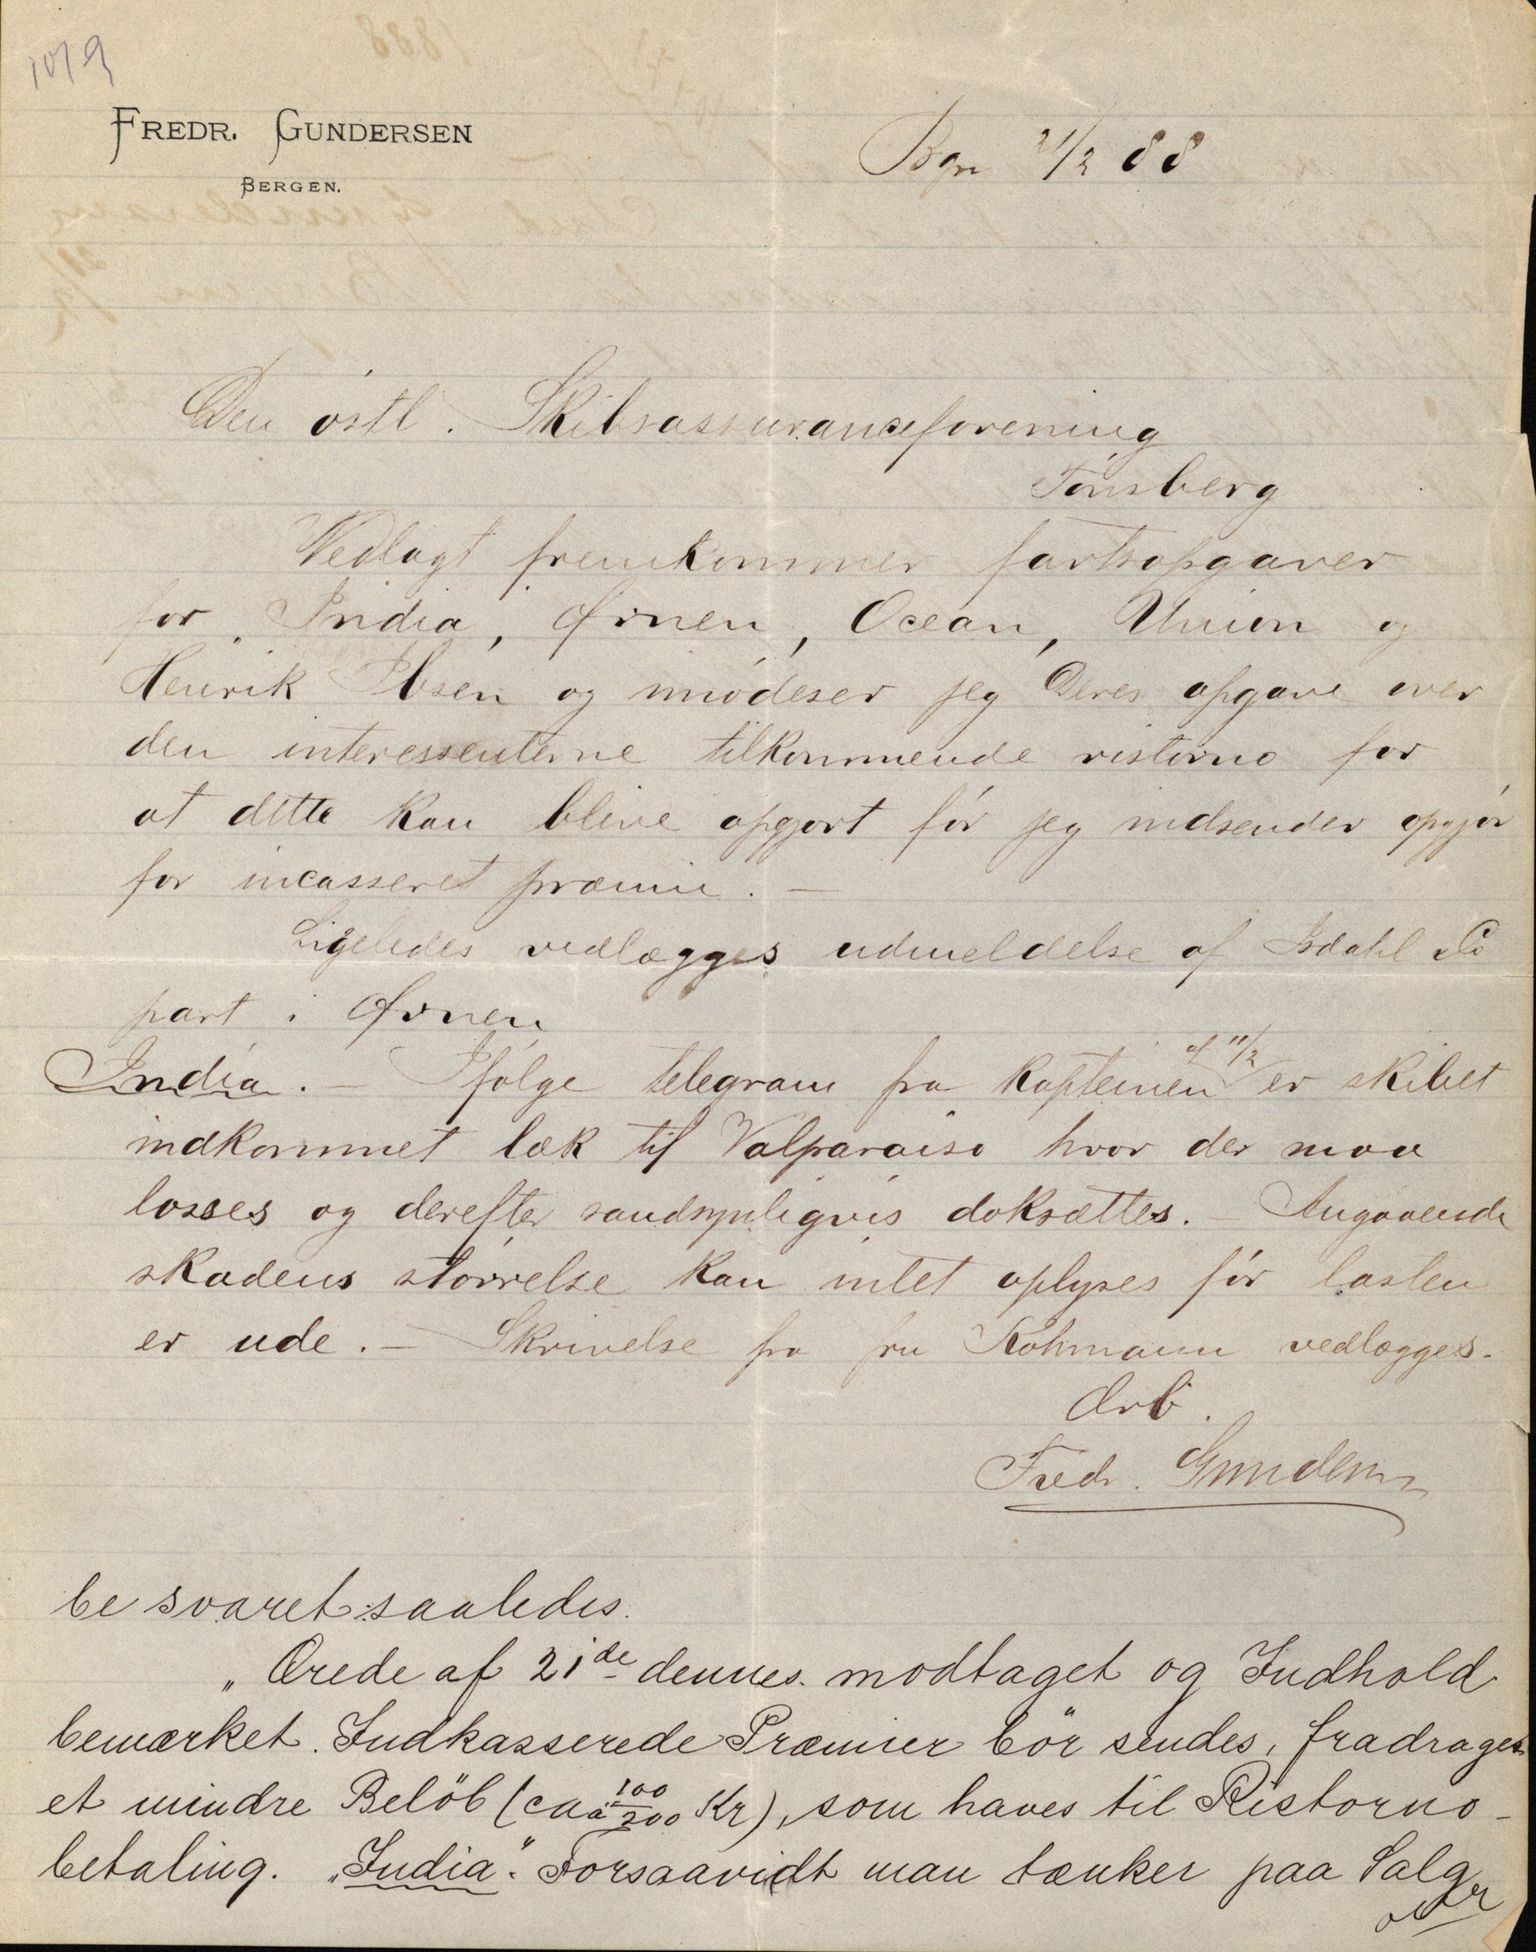 1079
FREDR. GUNDERSEN
BERGEN.
Bgn 21/2 88
Den östl. Skibsassuranceforening
Tönsberg
Vedlagt fremkommer fartsopgaver
for India, Ørnen, Ocean, Union og
Henrik Ibsen og imödeser jeg Deres opgave over
den interessenterne tilkommende ristorno for
at dette kan blive opgjort för jeg indsender opgjör
for incasseret præmie. —
Ligeledes vedlægges udmeldelse af Isdahl & Co
part i Ørnen
India. — Ifölge telegram fra kapteinen af 11/2 er skibet
indkommet læk til Valparaiso hvor der maa
losses og derefter sandsynligvis doksættes. — Angaaende
skadens störrelse kan intet oplyses för lasten
er ude. — Skrivelse fra fru Kohmann vedlægges.
Ærb.
Fredr. Gundersen
be svaret saaledes.
„Ærede af 21de dennes modtaget og Indhold
bemærket. Indkasserede Præmier bör sendes, fradrages
et mindre Belöb (ca à 100/200 Kr), som haves til Ristorno-
betaling. „India". Forsaavidt man tænker paa Salg